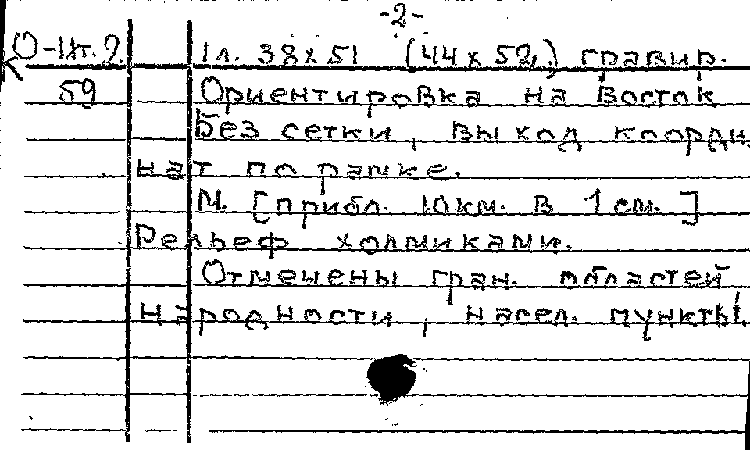 -2-
1 л. 38×51 (44×52,) гравир.
59 Ориентировка на Восток
Без сетки, выход коорди
нат по рамке.
М. [прибл. 10 км. в 1 см.]
Рельеф холмиками.
Отмечены гран. областей,
Народности, насел. пункты.